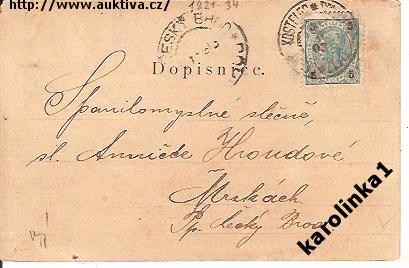 http://www.auktiva.cz/
1921 34
ČESKÝ BROD
KOSTELEC
5 5
Dopisnice.
Spanilomyslné slečně,
sl. Anničce Hroudové
Mrskách
Pp. Český Brod
karolinka1